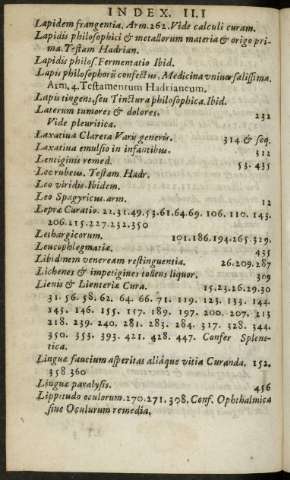 INDEX. II.I
Lapidem frangentia. Arm. 262. Vide calculi curam.
Lapidis philosophici & metallorum materia & origo pri-
ma. Testam Hadrian.
Lapidis philos. Fermentatio Ibid.
Lapis philosophorū confectus. Medicina vniuersalissima.
Arm, 4. Testamentum Hadrianeum.
Lapis tingens, seu Tinctura philosophica. Ibid.
Laterum tumores & dolores. 232
Vide pleuritica.
Laxatiua Clareta Varij generis. 314 & seq.
Laxatiua emulsio in infantibus. 312
Lentiginis remed. 53. 435
Leo rubeus. Testam. Hadr.
Leo viridis. Ibidem.
Leo Spagyricus. arm. 12
Lepræ Curatio. 22. 31. 49. 53. 61. 64. 69. 106. 110. 143.
206. 215. 227. 232. 350
Lethargicorum. 101. 186. 194. 265. 329.
Leucophlegmatiæ. 435
Libidinem veneream restinguentia. 26. 209. 287
Lichenes & impetigines tollens liquor. 309
Lienis & Lienteriæ Cura. 15. 23. 26. 29. 30
31. 56. 58. 62. 64. 66. 71. 119. 123. 133. 144.
145. 146. 155. 157. 189. 197. 200. 207. 213
218. 239. 240. 281. 283. 284. 317. 328. 344.
350. 353. 393. 421. 428. 447. Confer Splene-
tica.
Linguæ faucium asperitas aliáque vitia Curanda. 152.
358 360
Linguæ paralysis. 456
Lippitudo oculorum. 270. 271. 398. Conf. Ophthalmica
siue Oculurum remedia.